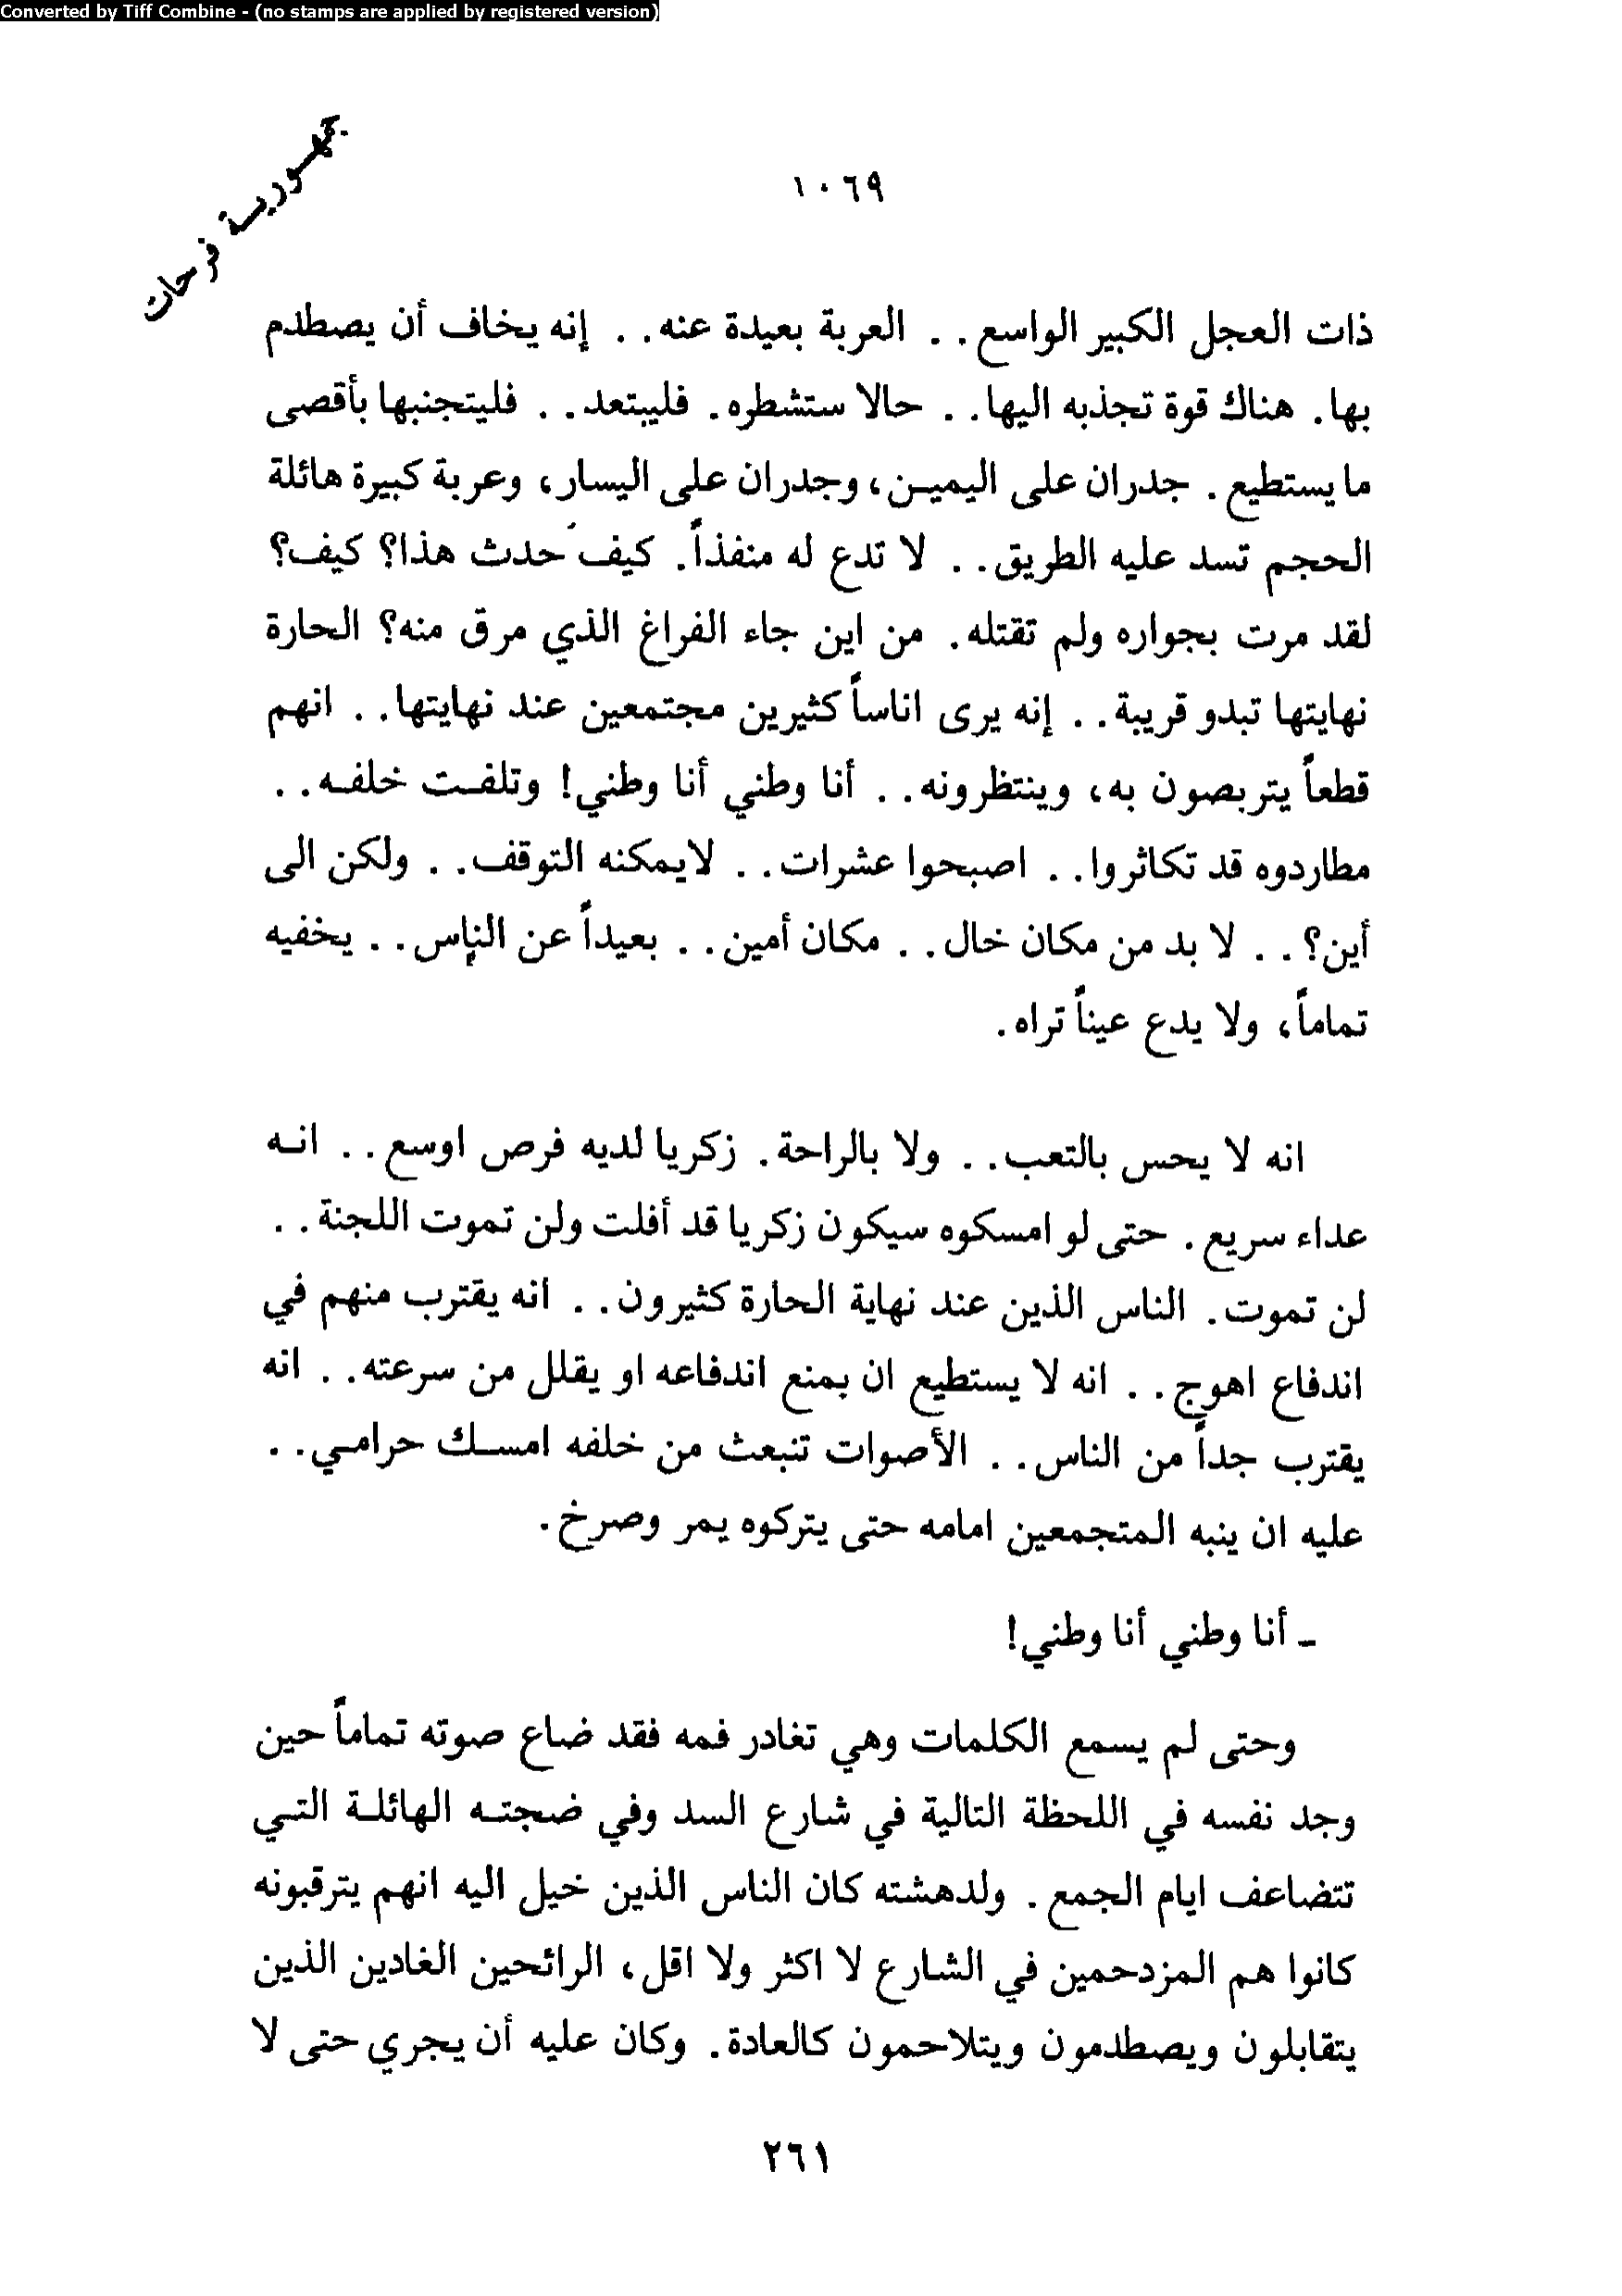 Converted by Tiff Combine - (no stamps are applied by registered version)
جمهورية فرحات
١٠٦٩
ذات العجل الكبير الواسع . . العربة بعيدة عنه . . إنه يخاف أن يصطدم
بها . هناك قوة تجذبه اليها . . حالا ستشطره . فليبتعد . . فليتجنبها بأقصى
ما يستطيع . جدران على اليمين ، وجدران على اليسار ، وعربة كبيرة هائلة
الحجم تسد عليه الطريق . . لا تدع له منفذاً . كيف حدث هذا؟ كيف؟
لقد مرت بجواره ولم تقتله . من اين جاء الفراغ الذي مرق منه؟ الحارة
نهايتها تبدو قريبة . . إنه يرى اناساً كثيرين مجتمعين عند نهايتها . . انهم
قطعاً يتربصون به ، وينتظرونه . . أنا وطني أنا وطني! وتلفت خلفه . .
مطاردوه قد تكاثروا . . اصبحوا عشرات . . لايمكنه التوقف . . ولكن الى
أين؟ . . لا بد من مكان خال . . مكان أمين . . بعيداً عن الناس . . يخفيه
تماماً ، ولا يدع عيناً تراه .
انه لا يحس بالتعب . . ولا بالراحة . زكريا لديه فرص اوسع . . انه
عداء سريع . حتى لو امسكوه سيكون زكريا قد أفلت ولن تموت اللجنة . .
لن تموت . الناس الذين عند نهاية الحارة كثيرون . . انه يقترب منهم في
اندفاع اهوج . . انه لا يستطيع ان يمنع اندفاعه او يقلل من سرعته . . انه
يقترب جداً من الناس . . الأصوات تنبعث من خلفه امسك حرامي . .
عليه ان ينبه المتجمعين امامه حتى يتركوه يمر وصرخ .
- أنا وطني أنا وطني!
وحتى لم يسمع الكلمات وهي تغادر فمه فقد ضاع صوته تماماً حين
وجد نفسه في اللحظة التالية في شارع السد وفي ضجته الهائلة التي
تتضاعف ايام الجمع . ولدهشته كان الناس الذين خيل اليه انهم يترقبونه
كانوا هم المزدحمين في الشارع لا اكثر ولا اقل ، الرائحين الغادين الذين
يتقابلون ويصطدمون ويتلاحمون كالعادة . وكان عليه أن يجري حتى لا
٢٦١